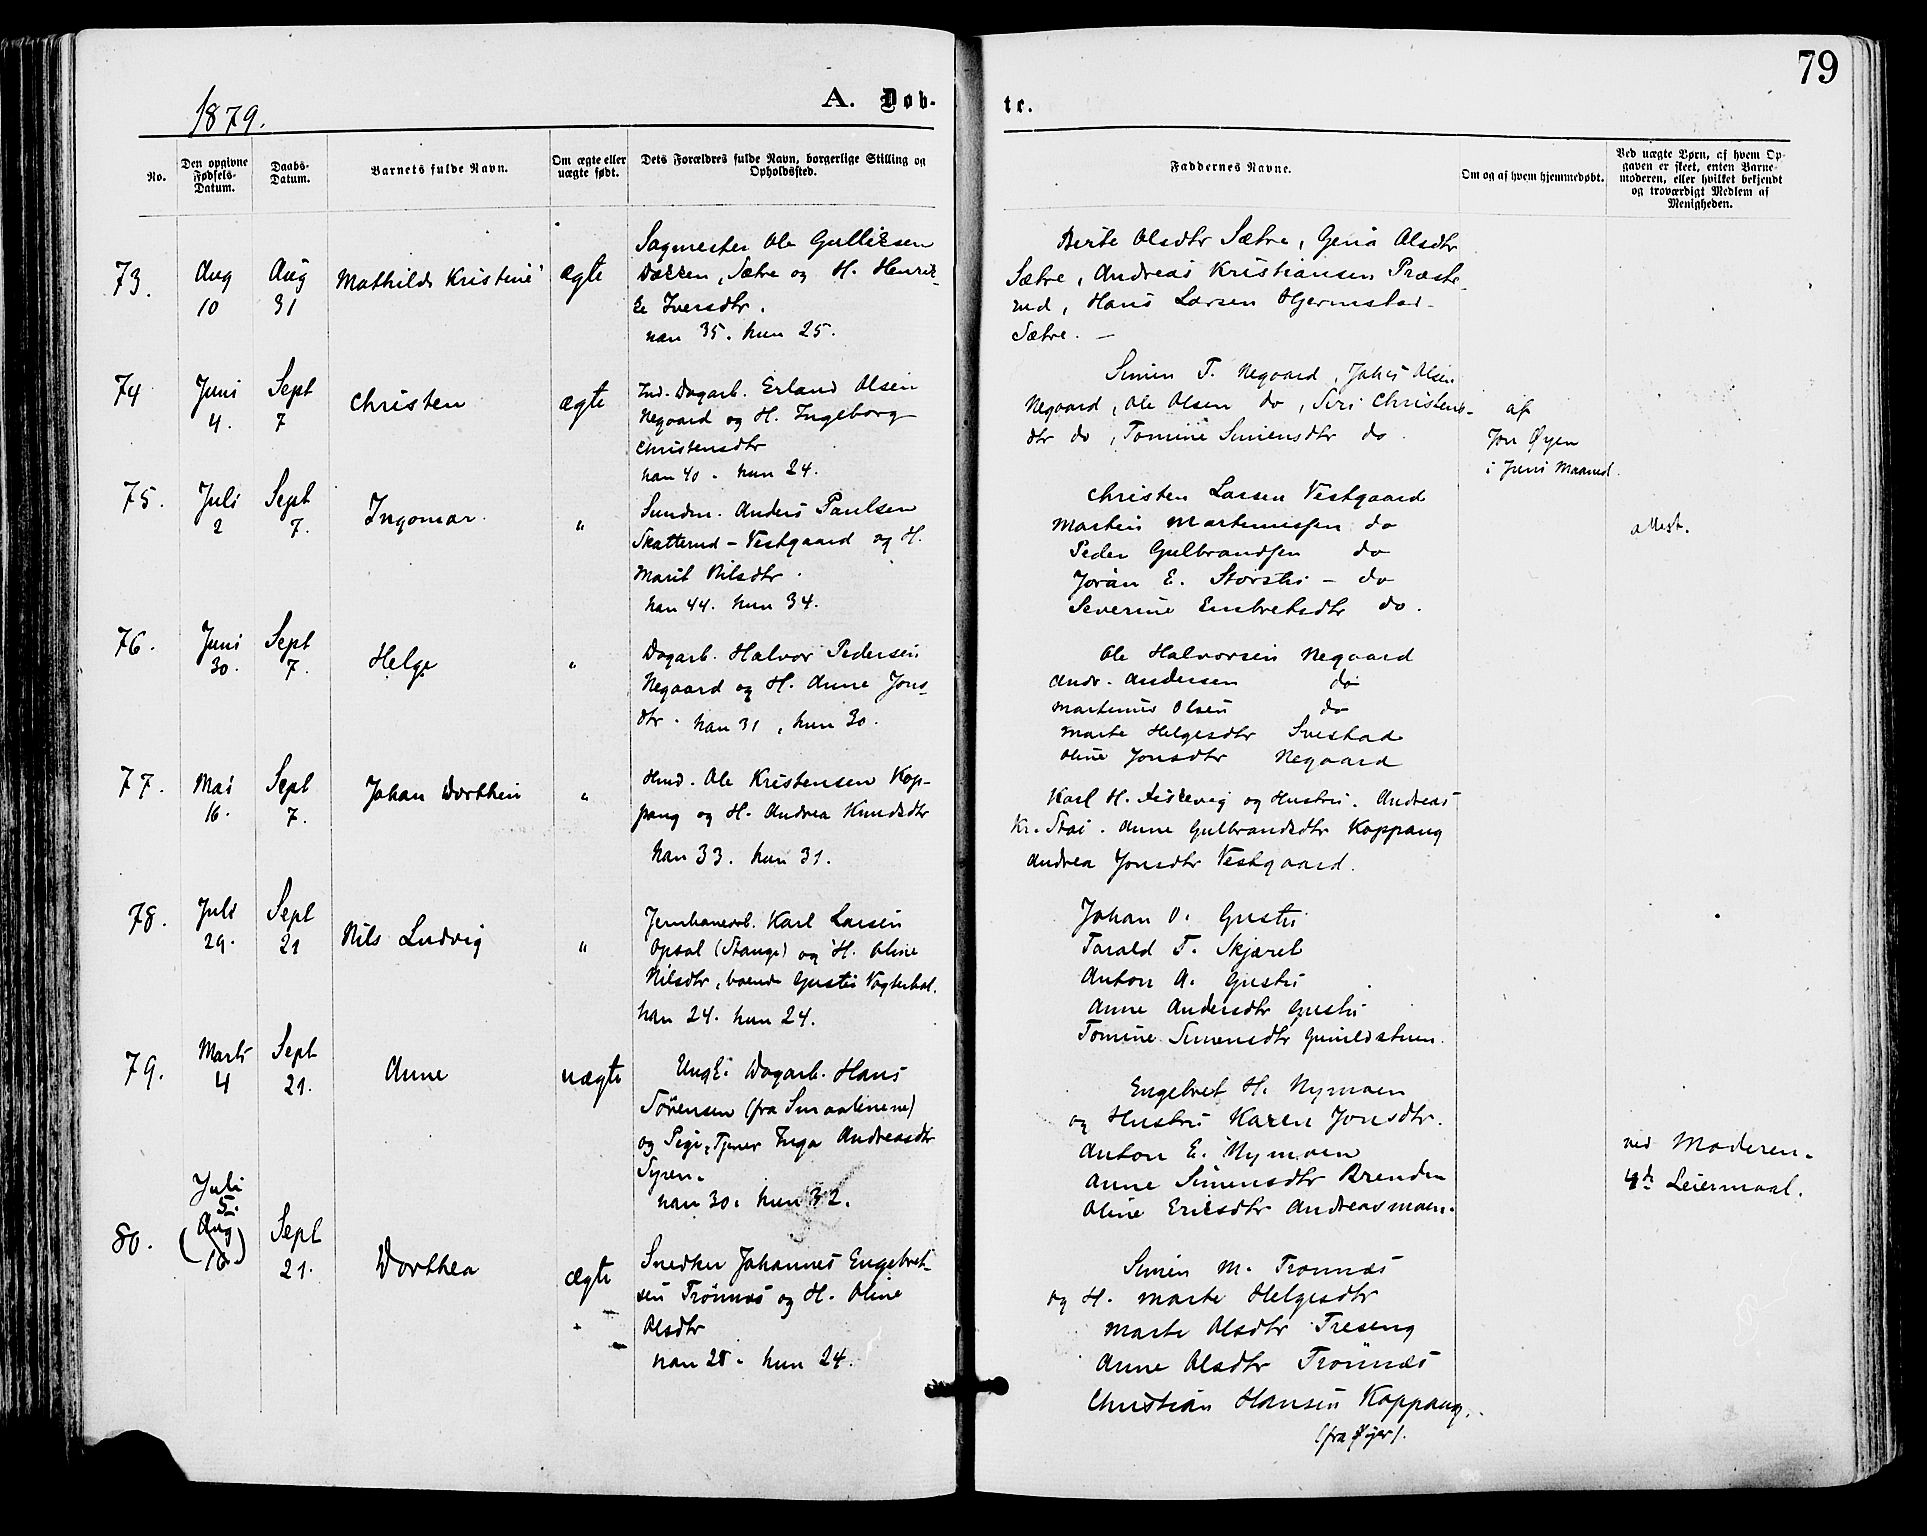 79
1879.
A. Døb-
te.
No.
Den opgivne Fødsels-Datum.
Daabs-Datum.
Barnets fulde Navn.
Om ægte eller uægte født.
Dets Forældres fulde Navn, borgerlige Stilling og Opholdssted.
Faddernes Navne.
Om og af hvem hjemmedøbt.
Ved uægte Børn, af hvem Op-
gaven er skeet, enten Barne-
moderen, eller hvilket bekjendt
og troværdigt Medlem af
Menigheden.
73.
Aug 10
Aug 31
Mathilde Kristine
ægte
Sagmester Ole Gulliksen
Dækken, Sætre og H. Henrik-
ke Iversdtr.
han 35. hun 25.
Berte Olsdtr Sætre, Gina Olsdtr
Sætre, Andreas Kristiansen Præste-
rud, Hans Larsen Hjermstad-
Sætre. —
74
Juni 4.
Sept 7
Christen
ægte
Ind. Dagarb. Erland Olsen
Negaard og H. Ingeborg
Christensdtr
han 40. hun 24.
Simen T. Negaard, Olsen
Negaard, Ole Olsen do, Siri Christens-
dtr do, Tomine Simensdtr do.
af
Jon Øyen
i Juni Maaned.
75.
Juli 2
Sept 7.
Ingomar.
"
Anders Paulsen
Skatterud - Vestgaard og H.
Marit Nilsdtr.
han 44. hun 34.
Christen Larsen Vestgaard
Martin Martinussen do
Peder Gulbrandsen do
Joran E. Storstu - do
Severine Embretsdtr do.
attest.
76.
Juni 30.
Sept 7.
Helge
"
Dagarb. Halvor Pedersen
Negaard og H. Anne Jons-
dtr. han 31, hun 30.
Ole Halvorsen Negaard
Andr. Andersen do
Martinus Olsen do
Marte Helgesdtr Svestad
Oline Jonsdtr Negaard
77.
Mai 16.
Sept 7.
Johan Dorthin
"
Hmd. Ole Kristensen Kop-
pang og H. Andrea Knudsdtr
han 33. hun 31.
Karl H. Fiskevig og Hustru. Andreas
Kr. Stai. Anne Gulbrandsdtr Koppang
Andrea Jonsdtr Vestgaard.
78.
Juli 29.
Sept 21
Nils Ludvig
"
Jernbanearb. Karl Larsen
Opsal (Stange) og H. Oline
Nilsdtr, boende Gustu Vagterbol.
han 24. hun 24.
Johan O. Gustu
Tarald T. Skjæret
Anton A. Gustu
Anne Andersdtr Gustu
Tomine Simensdtr
79.
Marts 4
Sept 21.
Anne
uægte
Ungk. Dagarb. Hans
Sørensen (fra Smaalenene)
og Pige, Tjener Inga Andreasdtr
Syren.
han 30. hun 32.
Engebret H. Nymoen
og Hustru Karen Jonsdtr.
Anton E. Nymoen
Anne Simensdtr Brenden
Oline Ericsdtr Andreasmoen.
ved Moderen.
4de Leiermaal.
80.
Juli 5.
(Aug 10)
Sept 21.
Dorthea
ægte
Snedker Johannes Engebret-
sen Trønnes og H. Oline
Olsdtr
han 28. hun 24.
Simen M. Trønnes
og H. Marte Helgesdtr
Marte Olsdtr Treseng
Anne Olsdtr Trønnes
Christian Hansen Koppang.
(fra Øyer).